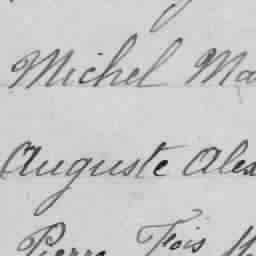 Michel Ma
Auguste Alex
Pierre Fois